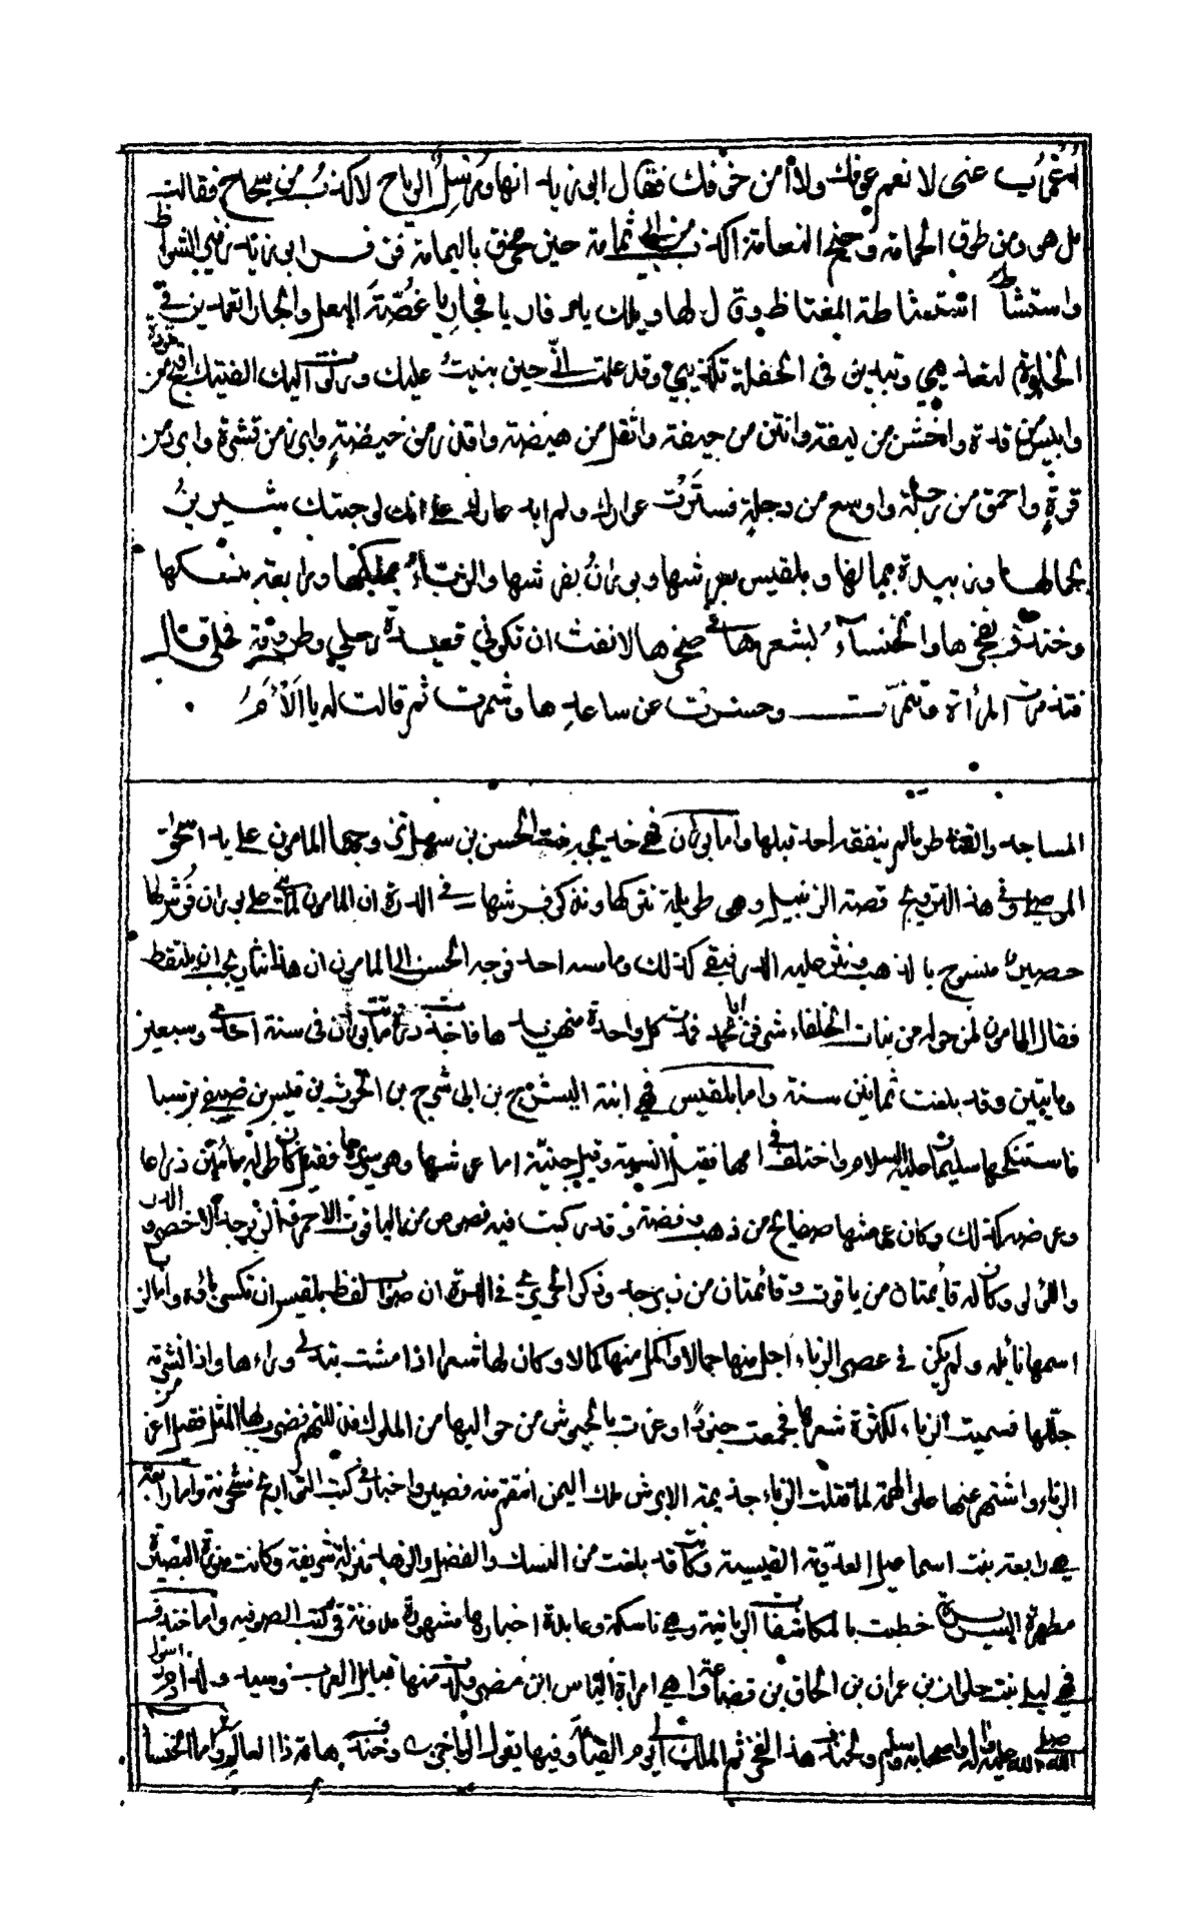 اغرب عني لا نعم عوفك ولا أمن خوفك فقال ابو زيد انها ومرسل الرياح لاكذب من سجاح فقالت
بل هو ومن طوق الحمامة وجنح النعامة اكذب من ابي ثمامة حين مخرق باليمامة فزفر ابو زيد زفير الشواظ
واستشاط استشاطة المغتاظ وقال لها ويلك يا دفار يا فجار يا غصة البعل والجار اتعمدين في
الخلوة لتعذيبي وتبدين في الحفلة تكذيبي وقد علمت اني حين بنيت عليك ورنوت اليك الفيتك اقبح من قردة
وايبس من قدة واخشن من ليفة وانتن من جيفة واثقل من هيضة واقذر من حيضة وابرز من قشرة وابرد من
قرة واحمق من رجلة واوسع من دجلة فسترت عوارك ولم ابد عارك على انك لو حبتك شيرين
بجمالها وزبيدة بمالها وبلقيس بعرشها وبوران بفرشها والزباء بملكها ورابعة بنسكها
وخندف بفخرها والخنساء بشعرها في صخرها لانفت ان تكوني قعيدة رحلي وطروقة فحلي قال
فتذمرت المرأة وتنمرت وحسرت عن ساعدها وشمرت ثم قالت له يا الأم
المساجد والقناطر مالم ينفقه احد قبلها واما بوران فهي خديجة بنت الحسن بن سهل تزوجها المامون على يد اسحق
الموصلي وفي هذا التزويج قصة الزنبيل وهي طويلة نتركها ونذكر فرشها في الدرة ان المامون لما بنى على بوران فرش لها
حصير منسوج بالذهب ونثر عليه الدر فبقي كذلك وما مسه احد فوجه الحسن الى المامون ان هذا نثار يجب ان يلتقط
فقال المامون لمن حوله من بنات الخلفاء شرفن ابا محمد فمدت كل واحدة منهن يدها فاخذت درة وماتت بوران في سنة احدى وسبعين
ومايتين وقد بلغت ثمانين سنة واما بلقيس فهي ابنة اليشرح بن ابي شرح بن الحرث بن قيس بن صيفي بن سبا
فاستنكحها سليمان عليه السلام واختلف في امها فقيل انسية وقيل جنية اما عرشها وهو سريرها فقيل كان طوله ثمانين ذراعا
وعرضه كذلك وكان عرشها صفايح من ذهب وفضة وقد ركبت فيه فصوص من الياقوت الاحمر والزبرجد الاخضر والدر
واللؤلؤ وكان له قائمتان من ياقوت وقائمتان من زبرجد وذكر الحريري في الدرة ان صواب لفظ بلقيس ان تكسر باؤه واما الزباء
اسمها نايلة ولم يكن في عصر الزباء اجمل منها جمالا واكمل منها كمالا وكان لها شعر اذا مشت تدلى وراءها واذا نشرته
جللها فسميت الزباء لكثرة شعرها فجمعت جنودا وغزت بالجيوش من حواليها من الملوك فضرب بها المثل فقيل اعز من
الزباء واشتهر عنها علو الهمة لما قتلت الزباء جذيمة الابرش ملك اليمن انتقم منه قصير واخباره في كتب التواريخ مشحونة واما رابعة
هي رابعة بنت اسماعيل العدوية القيسية وكانت قد بلغت من النسك والفضل والزهد منزلة شريفة وكانت منورة البصيرة
مطهرة السريرة خطبت بالمكاشفات الربانية وهي ناسكة وعابدة اخبارها مشهورة مدونة في كتب الصوفيه واما خندف
فهي ليلى بنت حلوان بن عمران بن الحاف بن قضاعة وهي امراة الياس ابن مضر ولدت منها قبايل العرب وسيد ولد ادم رسول
الله صلى الله عليه وآله واصحابه وسلم ولخندف هذا الفخر ثم الملك الى يوم القيامة وفيها يقول الراجز وخندف هامة ذا العالم واما الخنسا